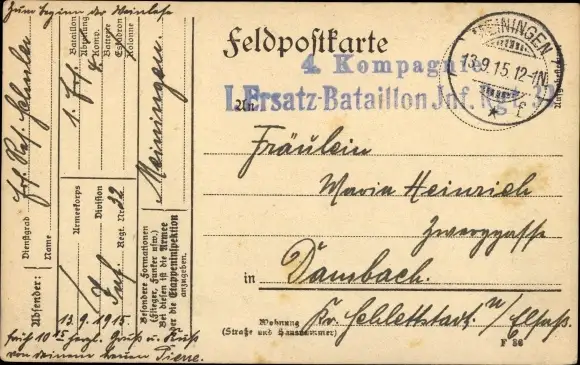 Feldpostkarte
4. Kompagnie
I. Ersatz-Bataillon Inf. Rgt. 32
MEININGEN
13.9.15.12-1N.
* f
An
Fräulein
Maria Heinrich
Zwerggasse
in Dambach.
Kr. Schlettstadt i/Elsass.
Wohnung
(Straße und Hausnummer)
F 86
Zum Beginn der Weinlese
Absender:
Dienstgrad
Name
Armeekorps
Division
Inf. Regt. Nr. 32
1. Bataillon
Abteilung
4. Komp.
Batterie
Eskadron
Kolonne
Meiningen.
Besondere Formationen
(Flieger, Funker usw.)
Bei diesen ist die Armee
oder die Etappeninspektion
anzugeben.
13.9.1915.
früh 10 herzl. Gruß u. Kuß
von deinem treuen Pierre.